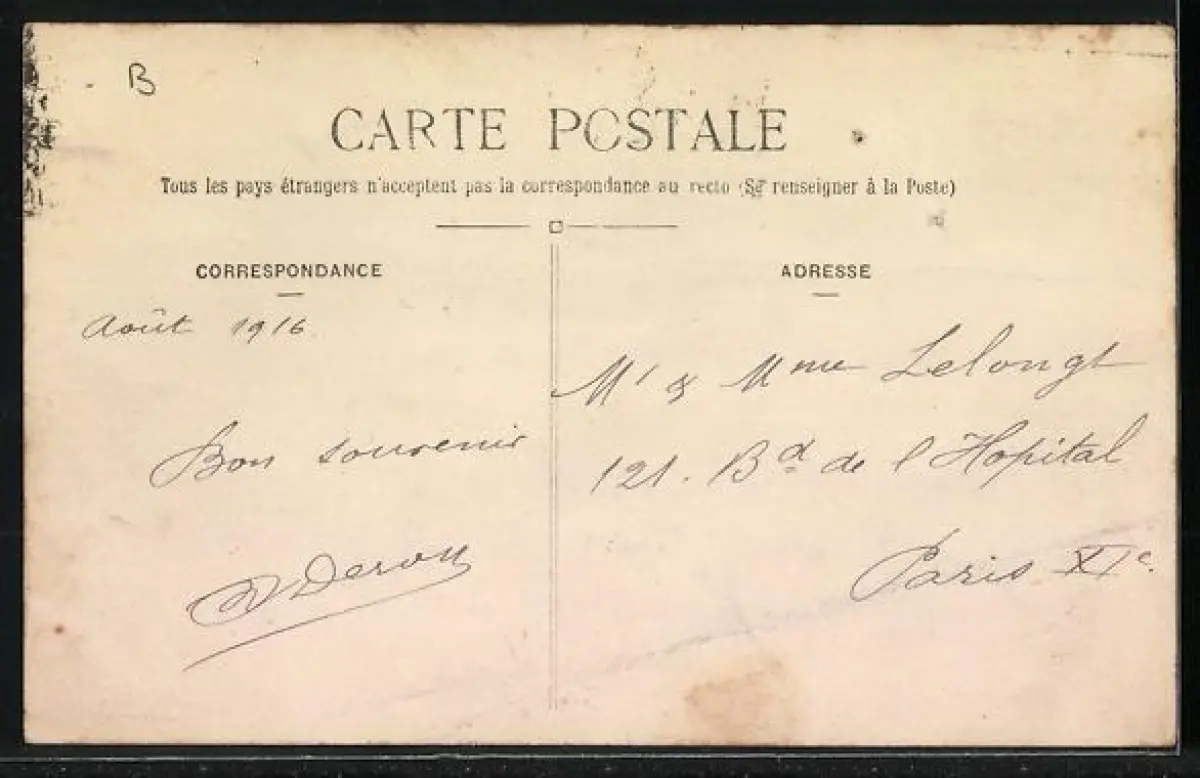 B
CARTE POSTALE
Tous les pays étrangers n'acceptent pas la correspondance au recto (Se renseigner à la Poste)
CORRESPONDANCE
Août 1916
Bon souvenir
ADRESSE
Mr & Mme Lelongt
121. Bd de l'Hopital
Paris